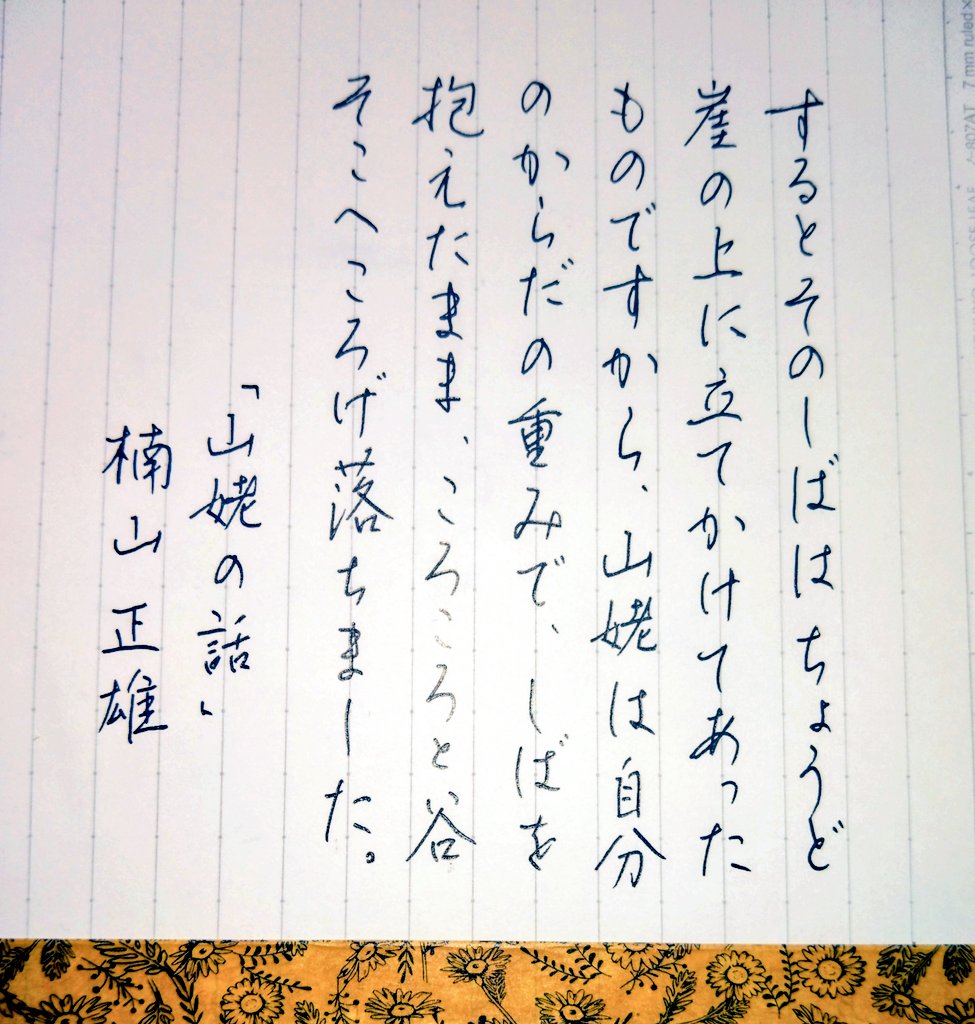 するとそのしばはちょうど
崖の上に立てかけてあった
ものですから、山姥は自分
のからだの重みで、しばを
抱えたまま、ころころと谷
そこへころげ落ちました。
「山姥の話」
楠山正雄
7mm ruled ×